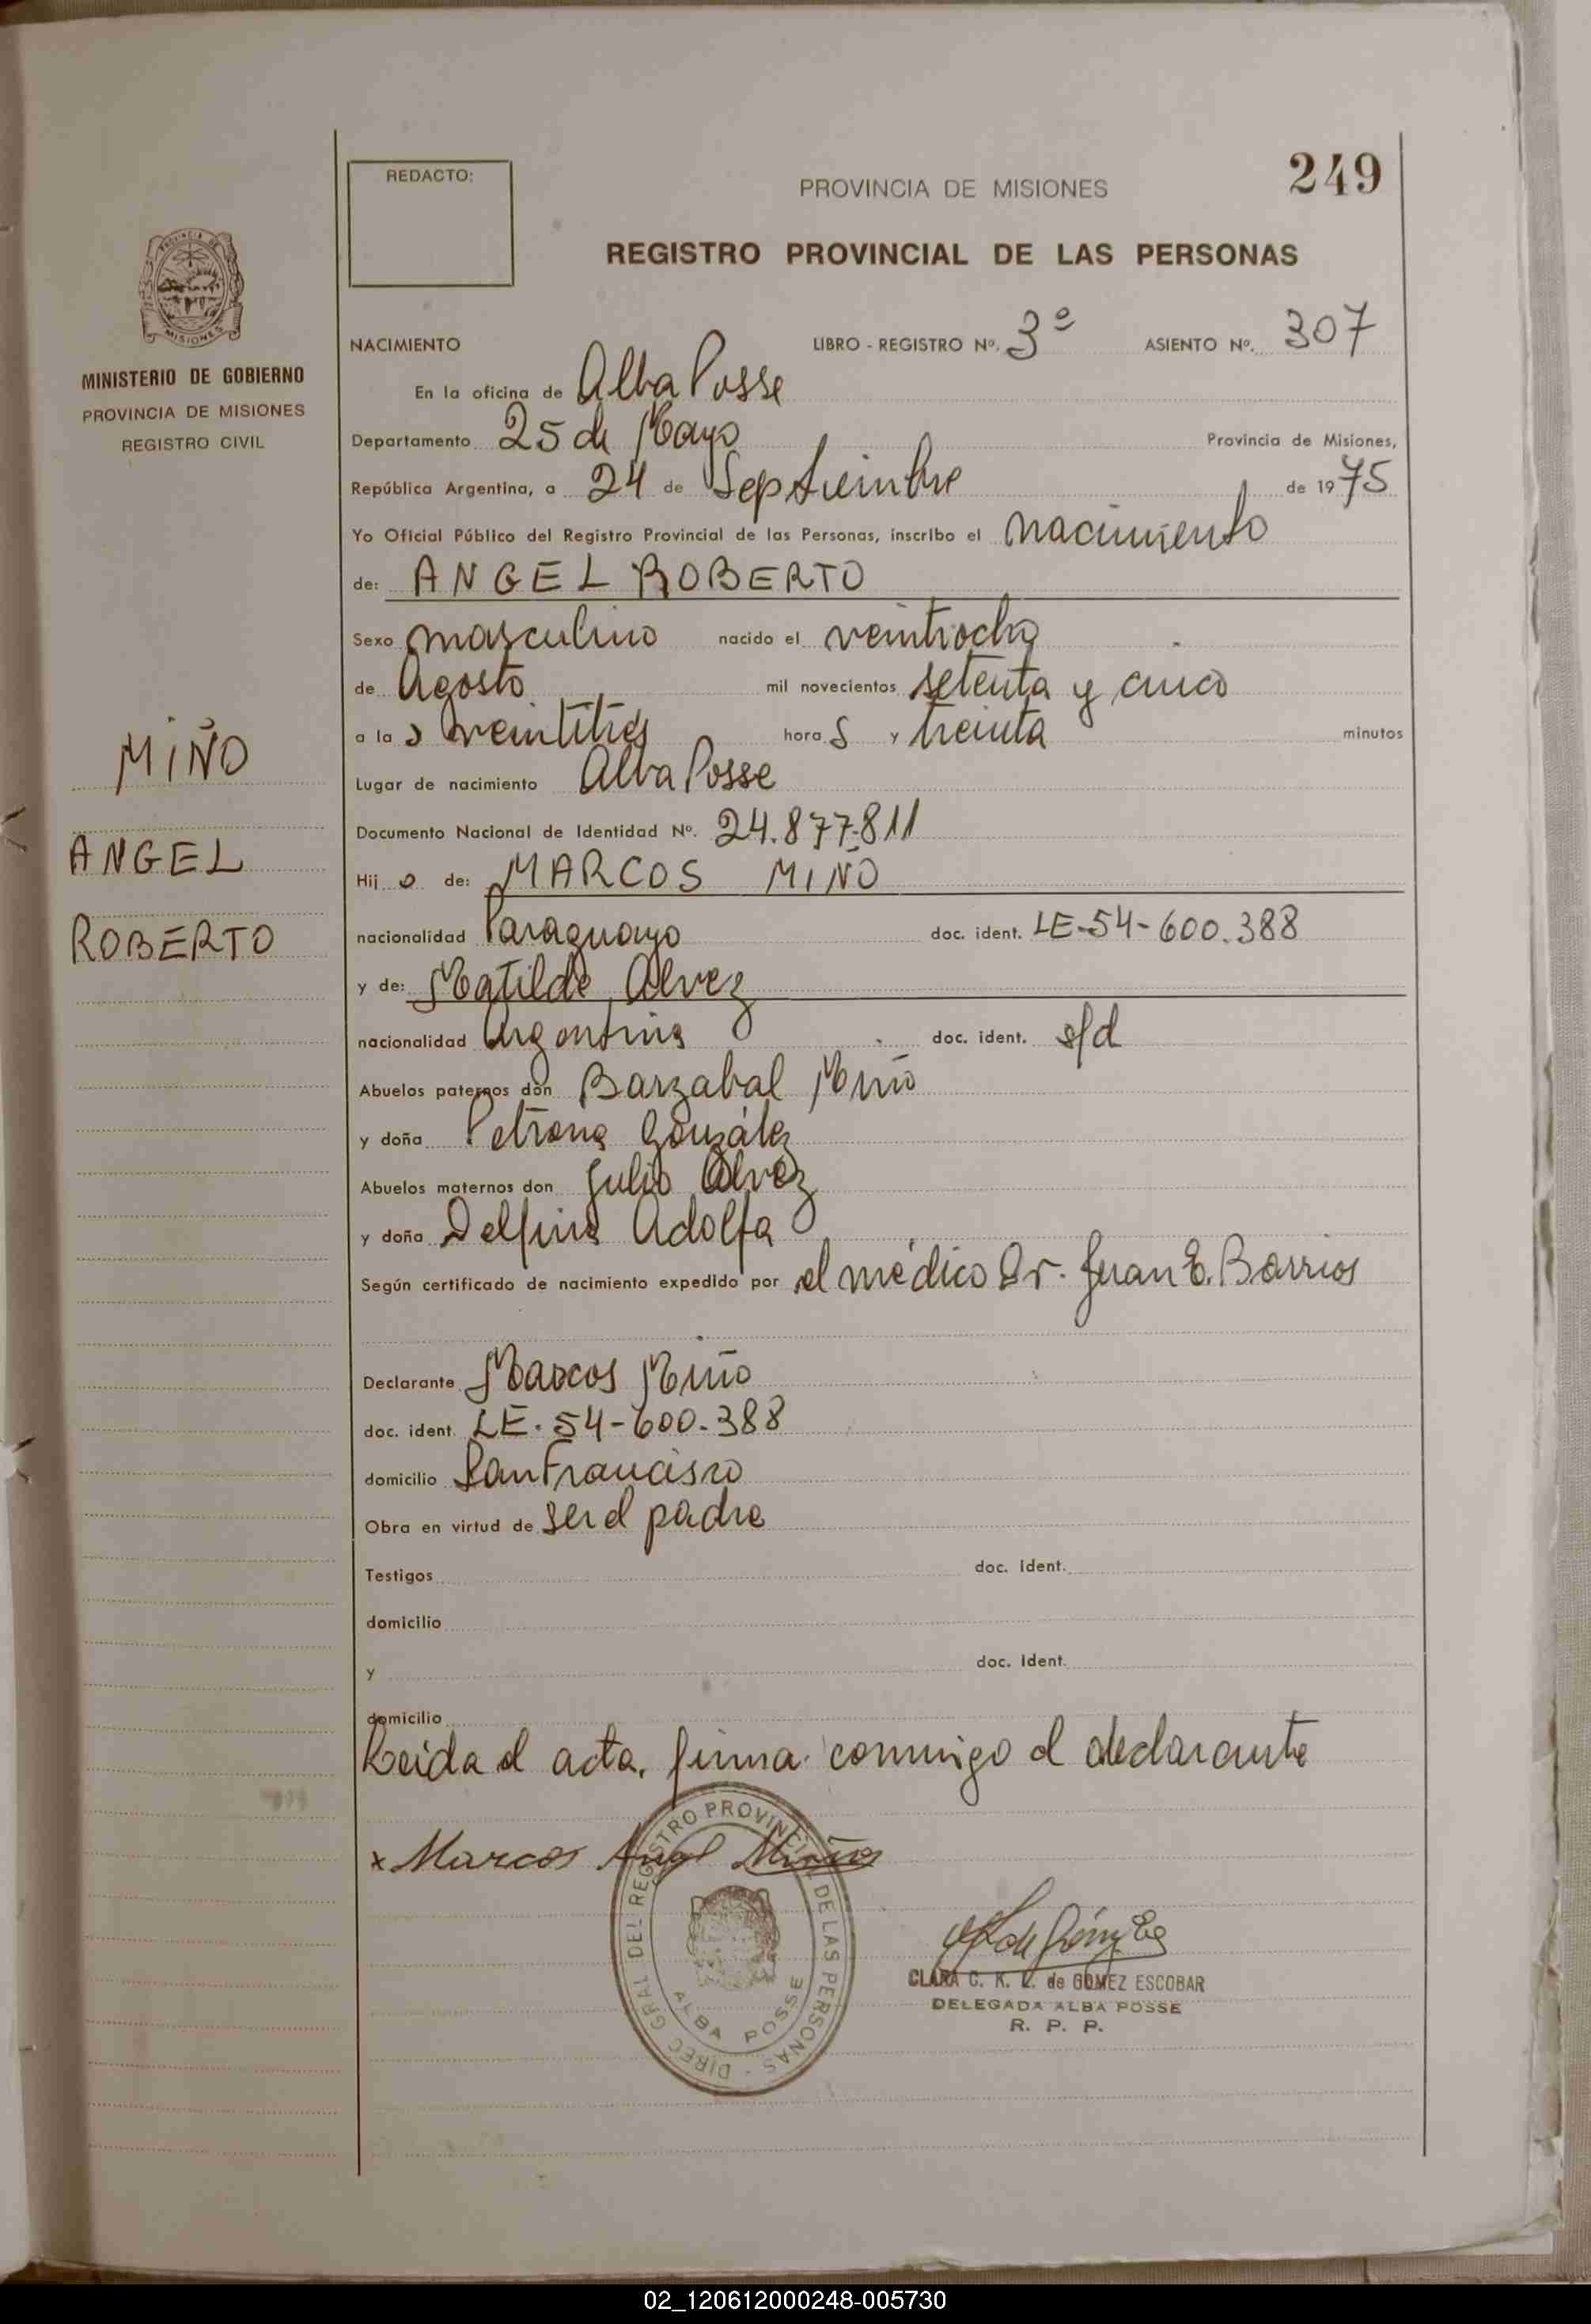 249
REDACTO:
PROVINCIA DE MISIONES
REGISTRO PROVINCIAL DE LAS PERSONAS
PROVINCIA DE
MISIONES
MINISTERIO DE GOBIERNO
PROVINCIA DE MISIONES
REGISTRO CIVIL
MIÑO
ANGEL
ROBERTO
NACIMIENTO LIBRO - REGISTRO Nº. 3º ASIENTO Nº. 307
En la oficina de Alba Posse
Departamento 25 de Mayo Provincia de Misiones,
República Argentina, a 24 de Septiembre de 1975
Yo Oficial Público del Registro Provincial de las Personas, inscribo el nacimiento
de: ANGEL ROBERTO
Sexo masculino nacido el veintiocho
de Agosto mil novecientos setenta y cinco
a la s veintitrés hora s y treinta minutos
Lugar de nacimiento Alba Posse
Documento Nacional de Identidad Nº. 24.877.811
Hij o de: MARCOS MIÑO
nacionalidad Paraguayo doc. ident. LE-54-600.388
y de: Matilde Alvez
nacionalidad Argentina doc. ident. s/d
Abuelos paternos don Barzabal Miño
y doña Petrona González
Abuelos maternos don Julio Alvez
y doña Delfina Adolfa
Según certificado de nacimiento expedido por el médico Dr. Juan E. Barrios
Declarante Marcos Miño
doc. ident. LE. 54-600-388
domicilio San Francisco
Obra en virtud de ser el padre
Testigos doc. ident.
domicilio
y doc. ident.
domicilio
Leida el acta, firma conmigo el declarante
x Marcos Angel Miño
DIREC GRAL DEL REGISTRO PROVINCIAL DE LAS PERSONAS -
ALBA POSSE
CLARA C. K. L. de GOMEZ ESCOBAR
DELEGADA ALBA POSSE
R. P. P.
02_120612000248-005730